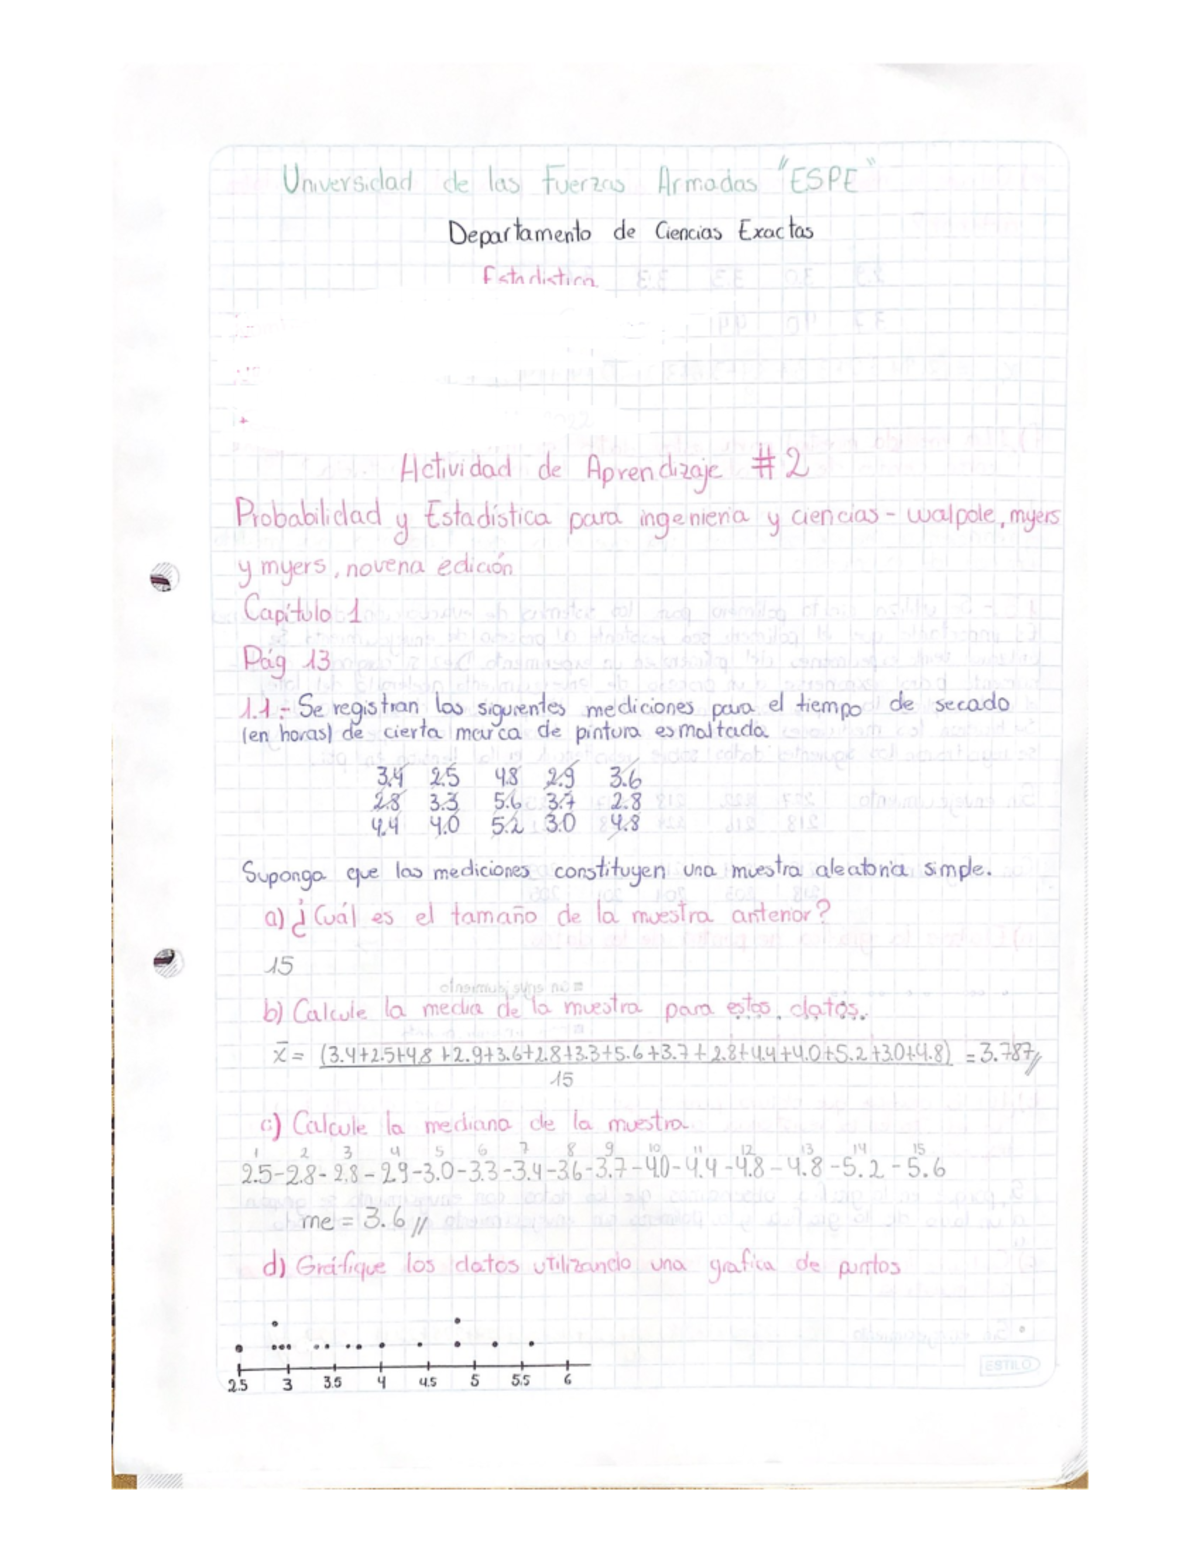 Universidad de las Fuerzas Armadas "ESPE"
Departamento de Ciencias Exactas
Estadistica
Actividad de Aprendizaje #2
Probabilidad y Estadística para ingenieria y ciencias - walpole, myers
y myers, novena edición
Capítulo 1
Pág 13
1.1.- Se registran los siguientes mediciones para el tiempo de secado
(en horas) de cierta marca de pintura esmaltada.
3.4 2.5 4.8 2.9 3.6
2.8 3.3 5.6 3.7 2.8
4.4 4.0 5.2 3.0 4.8
Suponga que las mediciones constituyen una muestra aleatoria simple.
a) ¿Cuál es el tamaño de la muestra anterior?
15
b) Calcule la media de la muestra para estos datos.
x̄ = (3.4+2.5+4.8+2.9+3.6+2.8+3.3+5.6+3.7+2.8+4.4+4.0+5.2+3.0+4.8) = 3.787//
15
c) Calcule la mediana de la muestra.
1 2 3 4 5 6 7 8 9 10 11 12 13 14 15
2.5-2.8-2.8-2.9-3.0-3.3-3.4-3.6-3.7-4.0-4.4-4.8-4.8-5.2-5.6
me = 3.6//
d) Gráfique los datos utilizando una grafica de puntos
2.5 3 3.5 4 4.5 5 5.5 6
ESTILO